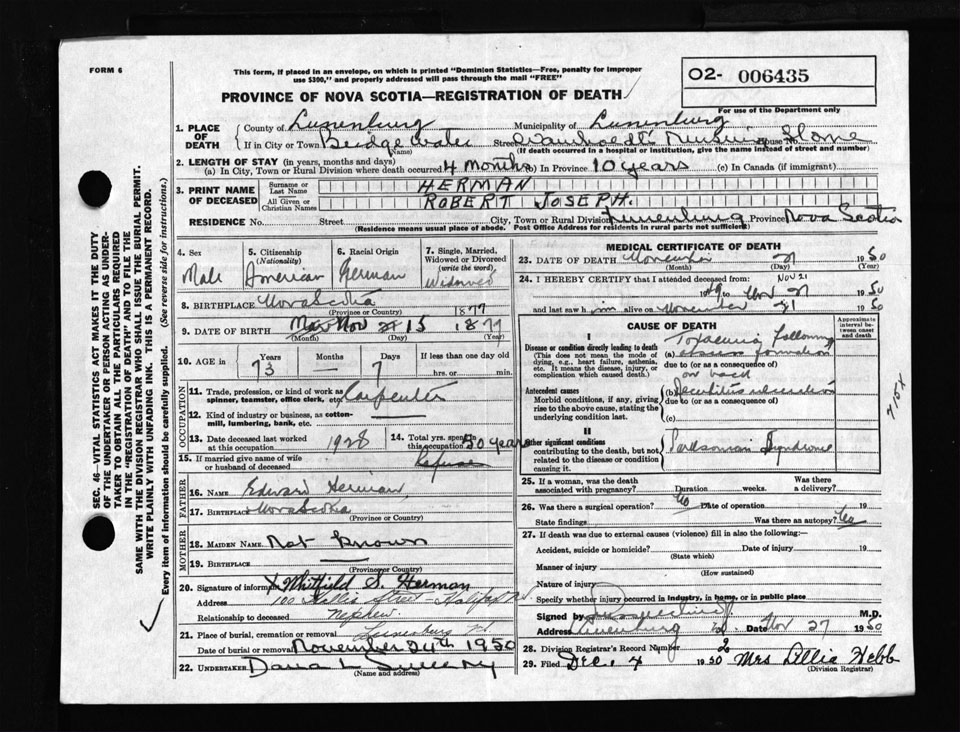 FORM 6
This form, if placed in an envelope, on which is printed "Dominion Statistics—Free, penalty for improper
use $300," and properly addressed will pass through the mail "FREE"
O2- 006435
For use of the Department only
PROVINCE OF NOVA SCOTIA—REGISTRATION OF DEATH
1. PLACE OF DEATH
County of Lunenburg Municipality of Lunenburg
If in City or Town Bridgewater Street House No. Nursing Home
(Name) (If death occurred in a hospital or institution, give the name instead of street and number)
2. LENGTH OF STAY (in years, months and days)
(a) In City, Town or Rural Division where death occurred 4 months (b) In Province 10 years (c) In Canada (if immigrant)
3. PRINT NAME OF DECEASED
Surname or Last Name HERMAN
All Given or Christian Names ROBERT JOSEPH.
RESIDENCE No. Street City, Town or Rural Division Lunenburg Province Nova Scotia
(Residence means usual place of abode. Post Office Address for residents in rural parts not sufficient)
SEC. 46—VITAL STATISTICS ACT MAKES IT THE DUTY
OF THE UNDERTAKER OR PERSON ACTING AS UNDER-
TAKER TO OBTAIN ALL THE PARTICULARS REQUIRED
IN THE "REGISTRATION OF DEATH" AND TO FILE THE
SAME WITH THE DIVISION REGISTRAR WHO SHALL ISSUE THE BURIAL PERMIT.
WRITE PLAINLY WITH UNFADING INK. THIS IS A PERMANENT RECORD.
Every item of information should be carefully supplied. (See reverse side for instructions.)
4. Sex Male
5. Citizenship (Nationality) American
6. Racial Origin German
7. Single, Married, Widowed or Divorced (write the word) Widowed
8. BIRTHPLACE Nova Scotia
(Province or Country) 1877
9. DATE OF BIRTH Nov 15 1877
(Month) (Day)
10. AGE in Years 73 Months — Days 7 If less than one day old hrs. or min.
OCCUPATION
11. Trade, profession, or kind of work as spinner, teamster, office clerk, etc. Carpenter
12. Kind of industry or business, as cotton-mill, lumbering, bank, etc. —
13. Date deceased last worked at this occupation 1928
14. Total yrs. spent in this occupation 50 years
15. If married give name of wife or husband of deceased
FATHER
16. Name Edward Herman
17. Birthplace Nova Scotia
(Province or Country)
MOTHER
18. MAIDEN NAME Not Known
19. BIRTHPLACE —
(Province or Country)
20. Signature of informant X Whitfield S. Herman
Address 100 Hollis Street - Halifax N.S.
Relationship to deceased Nephew.
21. Place of burial, cremation or removal Lunenburg
Date of burial or removal November 24th 1950
22. UNDERTAKER Dana L Sweeny
(Name and address)
MEDICAL CERTIFICATE OF DEATH
23. DATE OF DEATH November 21 1950
(Month) (Day) (Year)
24. I HEREBY CERTIFY that I attended deceased from: Nov 21
1949 to Nov 21 1950
and last saw him alive on November 21 1950
CAUSE OF DEATH
Approximate interval between onset and death
I
Disease or condition directly leading to death
(This does not mean the mode of dying, e.g., heart failure, asthenia, etc. It means the disease, injury, or complication which caused death.)
(a) Toxaemia following
due to (or as a consequence of)
on back
Antecedent causes
Morbid conditions, if any, giving rise to the above cause, stating the underlying condition last.
(b) Decubitus ulceration
due to (or as a consequence of)
(c)
715X
II
Other significant conditions
contributing to the death, but not related to the disease or condition causing it.
Parksonian Syndrome
25. If a woman, was the death associated with pregnancy? Duration weeks. Was there a delivery?
26. Was there a surgical operation? No Date of operation 19
State findings Was there an autopsy? No
27. If death was due to external causes (violence) fill in also the following:
Accident, suicide or homicide? Date of injury 19
(State which)
Manner of injury
(How sustained)
Nature of injury
Specify whether injury occurred in industry, in home, or in public place
Signed by M.D.
Address Lunenburg Date Nov 27 1950
28. Division Registrar's Record Number 2
29. Filed Dec. 4 1950 Mrs Lillia Hebb
(Division Registrar)